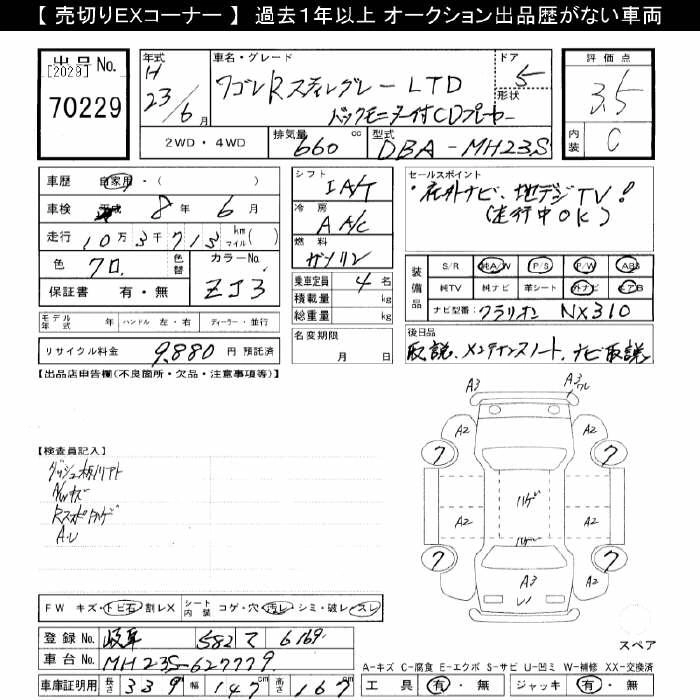 【 売切りEXコーナー 】 過去1年以上 オークション出品歴がない車両
出品No.
[2029]
70229
年式
H
23/6月
車名・グレード
ワゴンRスティングレーLTD
バックモニター付CDプレーヤー
ドア
5
形状
2WD・4WD
排気量 660 cc
型式 DBA-MH23S
評価点
3.5
内装 C
車歴 自家用・( )
車検 平成 8年 6月
走行 10万3千713 km マイル( )
色 クロ 色替
カラーNo. ZJ3
保証書 有・無
シフト IA/T
冷房 AA/C
燃料 ガソリン
乗車定員 4名
積載量 kg
総重量 kg
セールスポイント
・社外ナビ、地デジTV!
(走行中OK)
装備品
S/R 純A/W P/S P/W ABS
純TV 純ナビ 革シート 外ナビ エアB
ナビ型番: クラリオン NX310
モデル年式 年 ハンドル 左・右 ディーラー・並行
リサイクル料金 9,880 円 預託済
名変期限
月 日
後日品
取説、メンテナンスノート、ナビ取説
【出品店申告欄(不良箇所・欠品・注意事項等)】
【検査員記入】
A3
A3
A2 A2
7 7
ハゲ ハゲ
A2 A2
7 7
A3
FW キズ・トビ石・割レX
シート内装 コゲ・穴・汚レ・シミ・破レ・スレ
登録No. 岐阜 582 て 6169
車台No. MH23S-627779
車庫証明用 長さ 339cm 幅 147cm 高さ 167cm
スペア
A-キズ C-腐食 E-エクボ S-サビ U-凹ミ W-補修 XX-交換済
工具 有・無 ジャッキ 有・無